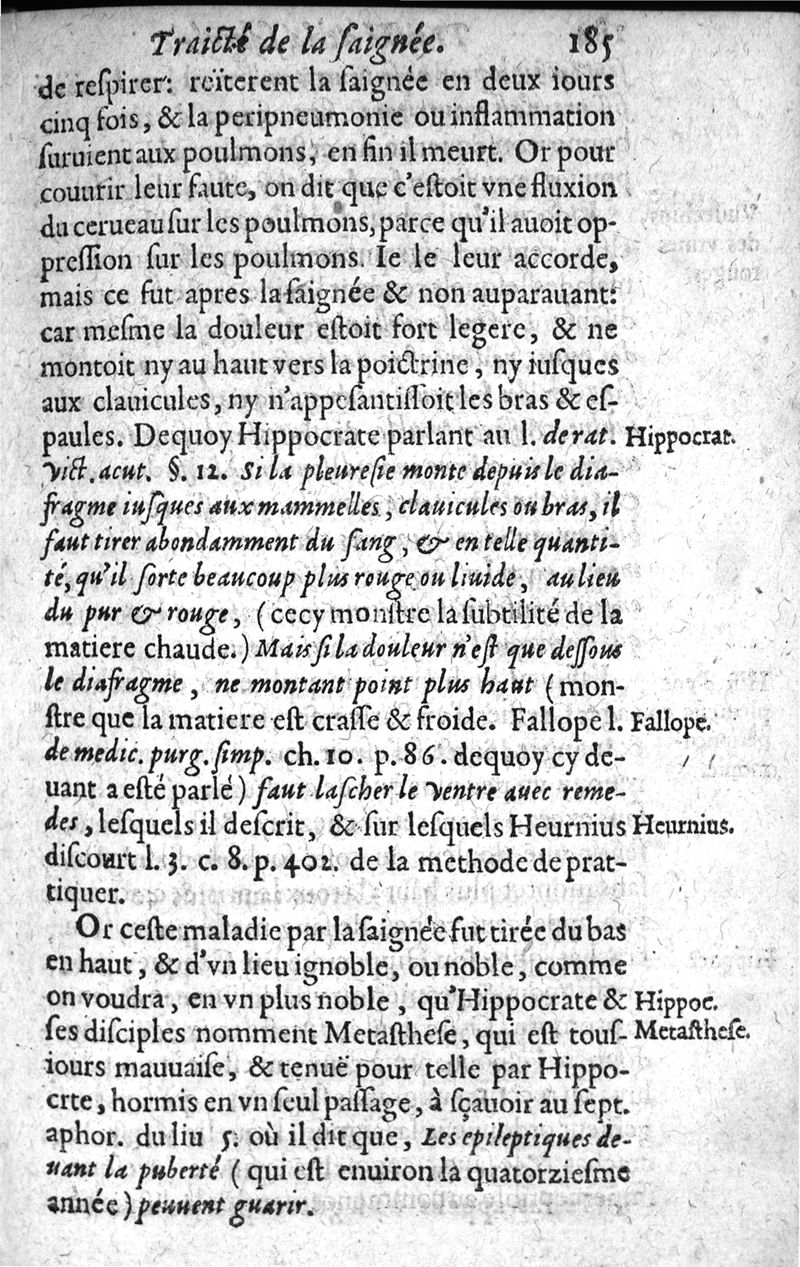 Traicté de la ſaignée. 185
de reſpirer: reïterent la ſaignée en deux iours
cinq fois, & la peripneumonie ou inflammation
ſuruient aux poulmons, en fin il meurt. Or pour
couurir leur faute, on dit que c'eſtoit vne fluxion
du cerueau ſur les poulmons, parce qu'il auoit op-
preſſion ſur les poulmons. Ie le leur accorde,
mais ce fut apres la ſaignée & non auparauant:
car meſme la douleur eſtoit fort legere, & ne
montoit ny au haut vers la poictrine, ny iuſques
aux clauicules, ny n'appeſantiſſoit les bras & eſ-
paules. Dequoy Hippocrate parlant au l. de rat. Hippocrat.
vict. acut. §. 12. Si la pleureſie monte depuis le dia-
fragme iuſques aux mammelles, clauicules ou bras, il
faut tirer abondamment du ſang, & en telle quanti-
té, qu'il ſorte beaucoup plus rouge ou liuide, au lieu
du pur & rouge, (cecy monſtre la ſubtilité de la
matiere chaude.) Mais ſi la douleur n'eſt que deſſous
le diafragme, ne montant point plus haut (mon-
ſtre que la matiere eſt craſſe & froide. Fallope l. Fallope.
de medic. purg. ſimp. ch. 10. p. 86. dequoy cy de-
uant a eſté parlé) faut laſcher le ventre auec reme-
des, leſquels il deſcrit, & ſur leſquels Heurnius Heurnius.
diſcourt l. 3. c. 8. p. 402. de la methode de prat-
tiquer.
Or ceſte maladie par la ſaignée fut tirée du bas
en haut, & d'vn lieu ignoble, ou noble, comme
on voudra, en vn plus noble, qu'Hippocrate & Hippoc.
ſes diſciples nomment Metaſtheſe, qui eſt touſ- Metaſtheſe.
iours mauuaiſe, & tenuë pour telle par Hippo-
crte, hormis en vn ſeul paſſage, à ſçauoir au ſept.
aphor. du liu 5. où il dit que, Les epileptiques de-
uant la puberté (qui eſt enuiron la quatorzieſme
année) peuuent guarir.